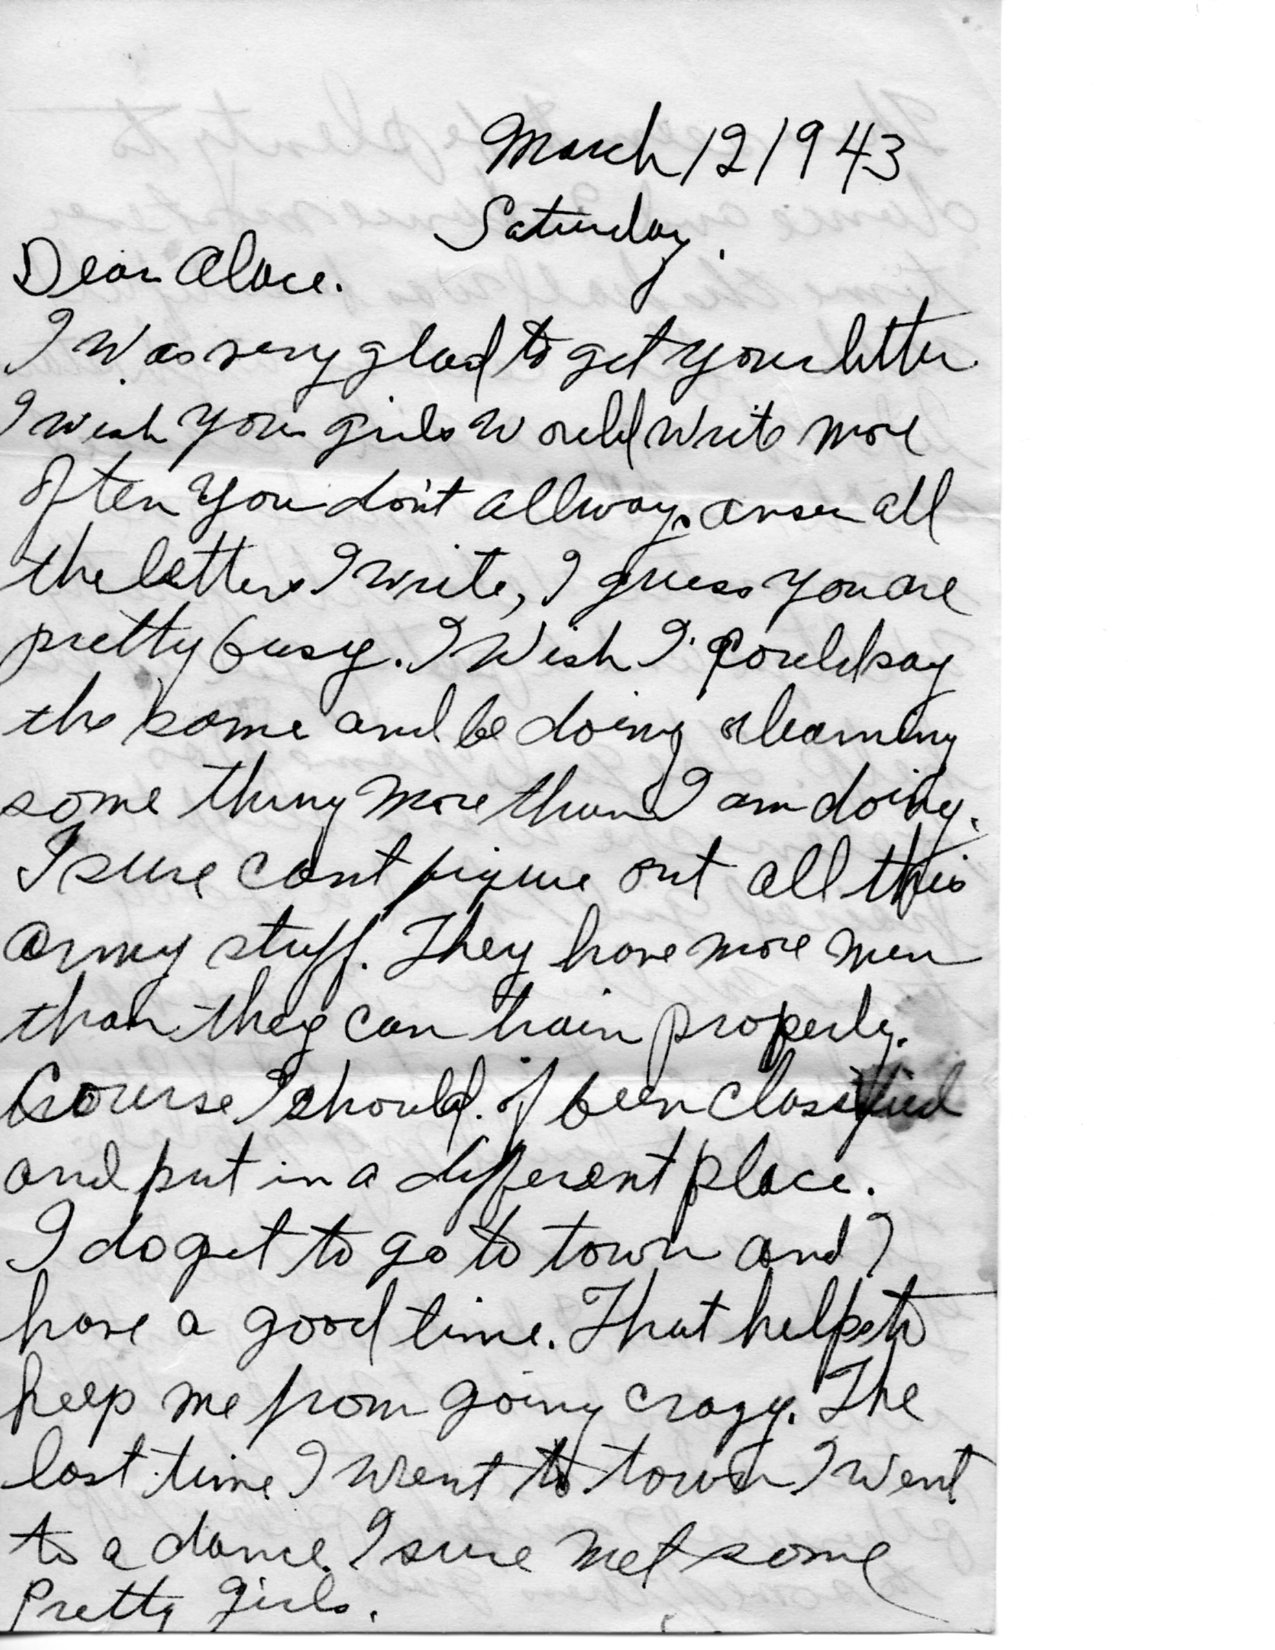 March 12 1943
Saturday.
Dear Alace.
I was very glad to get your letter.
I wish you girls would write more
often you don't allways anser all
the letters I write, I guess you are
pretty busy. I wish I could say
the same and be doing or learning
some thing more than I am doing.
I sure cant figure out all this
army stuff. They have more men
than they can train properly.
Course I should of been classified
and put in a different place.
I do get to go to town and I
have a good time. That helps to
keep me from going crazy. The
last time I went to town I went
to a dance. I sure met some
Pretty girls.